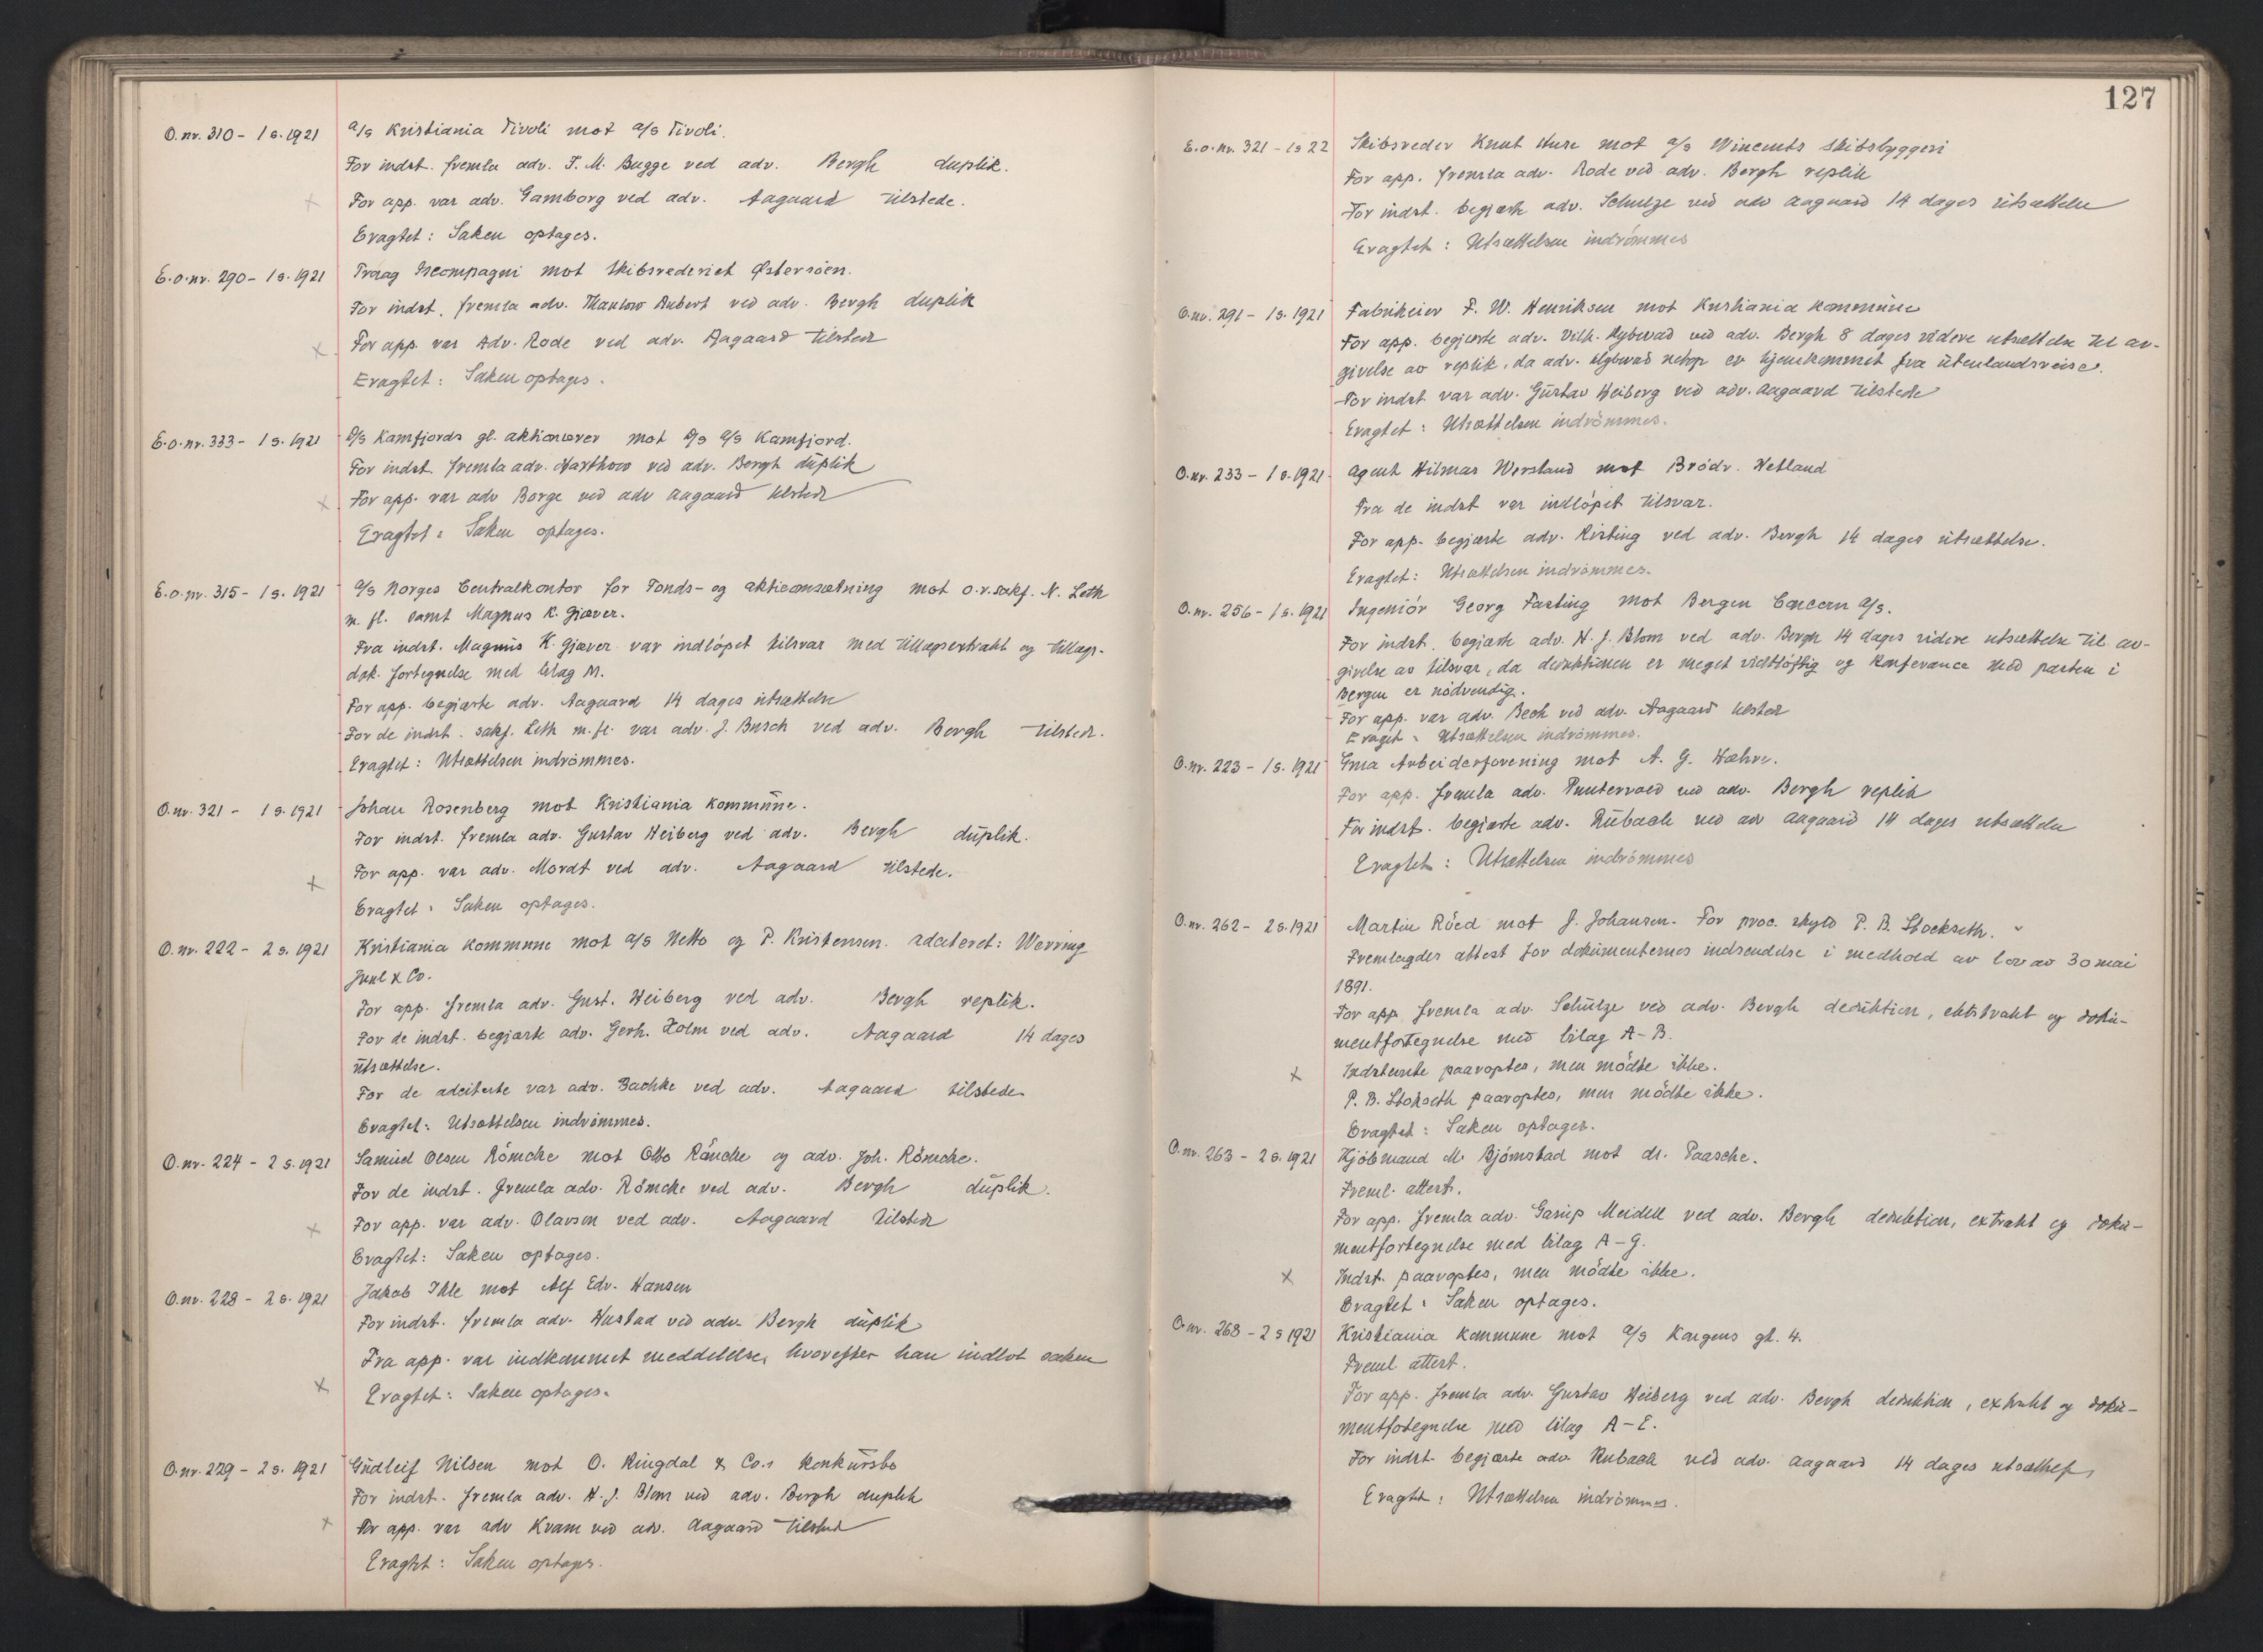 O.nr. 310 - 1 s. 1921 a/s Kristiania Tivoli mot a/s Tivoli.
For indst. fremla adv. F. M. Bugge ved adv. Bergh duplik.
For app. var adv. Gamborg ved adv. Aagaard tilstede.
Eragtet: Saken optages.
E.o.nr. 290 - 1 s. 1921 Traag &compagni mot Skibsrederiet Østersöen.
For indst. fremla adv. Thaulow Aubert ved adv. Bergh duplik
For app. var Adv. Rode ved adv. Aagaard tilstede
Eragtet: Saken optages.
E.o.nr. 333 - 1 s. 1921 D/s Kamfjords gl. aktionærer mot D/s a/s Kamfjord.
For indst. fremla adv. Harthow ved adv. Bergh duplik
For app. var adv Borge ved adv Aagaard tilstede
Eragtet: Saken optages.
E.o.nr. 315 - 1 s. 1921 a/s Norges Centralkontor for Fonds- og aktieomsætning mot o.r.sakf. N. Leth
m. fl. samt Magnus K. Gjæver.
Fra indst. Magnus K. Gjæver var indlöpet tilsvar med tillægsextrakt og tillægs-
dok. fortegnelse med bilag M.
For app. begjærte adv. Aagaard 14 dages utsættelse
For de indst. sakf. Leth m. fl. var adv. J. Busch ved adv. Bergh tilstede.
Eragtet: Utsættelsen indrömmes.
O.nr. 321 - 1 s. 1921 Johan Rosenberg mot Kristiania kommune.
For indst. fremla adv. Gustav Heiberg ved adv. Bergh duplik.
For app. var adv. Mordt ved adv. Aagaard tilstede.
Eragtet: Saken optages.
O.nr. 222 - 2 s. 1921 Kristiania kommune mot a/s Netto og P. Kristensen. adciteret: Werring
Juul & Co.
For app. fremla adv. Gust. Heiberg ved adv. Bergh replik.
For de indst. begjærte adv. Gerh. Holm ved adv. Aagaard 14 dages
utsættelse.
For de adciterte var adv. Bachke ved adv. Aagaard tilstede
Eragtet: Utsættelsen indrömmes.
O.nr. 224 - 2 s. 1921 Samuel Olsen Römcke mot Otto Römcke og adv. Joh. Römcke.
For de indst. fremla adv. Römcke ved adv. Bergh duplik.
For app. var adv. Olavson ved adv. Aagaard tilstede
Eragtet: Saken optages.
O.nr. 228 - 2 s. 1921 Jakob Ihle mot Alf Edv. Hansen
For indst. fremla adv. Hustad ved adv. Bergh duplik
Fra app. var indkommet meddelelse, hvorefter han indlot saken
Eragtet: Saken optages.
O.nr. 229 - 2 s. 1921 Gudleif Nilsen mot O. Ringdal & Co.s konkursbo
For indst. fremla adv. H. J. Blom ved adv. Bergh duplik
For app. var adv Kvam ved adv. Aagaard tilstede
Eragtet: Saken optages.
127
E.o.nr. 321 - 1 s 22 Skibsreder Knut Huse mot a/s Wincents Skibsbyggeri
For app. fremla adv. Rode ved adv. Bergh replik
For indst. begjærte adv. Schulze ved adv Aagaard 14 dages utsættelse
Eragtet: Utsættelsen indrömmes
O.nr. 291 - 1 s. 1921 Fabrikeier F. W. Henriksen mot Kristiania kommune
For app. begjærte adv. Vilh. Dybwad ved adv. Bergh 8 dages videre utsættelse til av-
givelse av replik, da adv. Dybwad netop er hjemkommet fra utenlandsreise.
For indst var adv. Gustav Heiberg ved adv. Aagaard tilstede
Eragtet: Utsættelsen indrömmes.
O.nr. 233 - 1 s. 1921 Agent Hilmar Werstand mot Brödr. Hetland
Fra de indst var indlöpet tilsvar.
For app. begjærte adv. Risting ved adv. Bergh 14 dages utsættelse.
Eragtet: Utsættelsen indrömmes.
O.nr. 256 - 1 s. 1921 Ingeniör Georg Fasting mot Bergen Concern a/s.
For indst. begjærte adv. H. J. Blom ved adv. Bergh 14 dages videre utsættelse til av-
givelse av tilsvar, da deduktionen er meget vidtlöftig og konferance med parten i
Bergen er nödvendig.
For app. var adv. Bech ved adv. Aagaard tilstede
Eragtet: Utsættelsen indrömmes.
O.nr. 223 - 1 s. 1921 Arbeiderforening mot A. G. Hæhre.
For app. fremla adv. Puntervold ved adv. Bergh replik
For indst. begjærte adv. Rubach ved adv Aagaard 14 dages utsættelse
Eragtet: Utsættelsen indrömmes
O.nr. 262 - 2 s. 1921 Martin Röed mot J. Johansen. For proc. skyld P. B. Stockseth.
Fremlagdes attest for dokumenternes indsendelse i medhold av lov av 30 mai
1891.
For app fremla adv. Schulze ved adv. Bergh deduktion, ekstrakt og doku-
mentfortegnelse med bilag A-B.
Indstevnte paaroptes, men mödte ikke.
P. B. Stokseth paaroptes, men mödte ikke.
Eragtet: Saken optages.
O.nr. 263 - 2 s. 1921 Kjöbmand M. Bjömstad mot dr. Paasche.
Freml. attest.
For app. fremla adv. Gasup Meidell ved adv. Bergh deduktion, extrakt og doku-
mentfortegnelse med bilag A-G.
Indst. paaroptes, men mödte ikke.
Eragtet: Saken optages.
O.nr. 268 - 2 s 1921 Kristiania kommune mot a/s Kongens gt. 4.
Freml. attest.
For app. fremla adv. Gustav Heiberg ved adv. Bergh deduktion, extrakt og doku-
mentfortegnelse med bilag A-E.
For indst. begjærte adv. Rubach ved adv. Aagaard 14 dages utsættelse
Eragtet: Utsættelsen indrömmes.